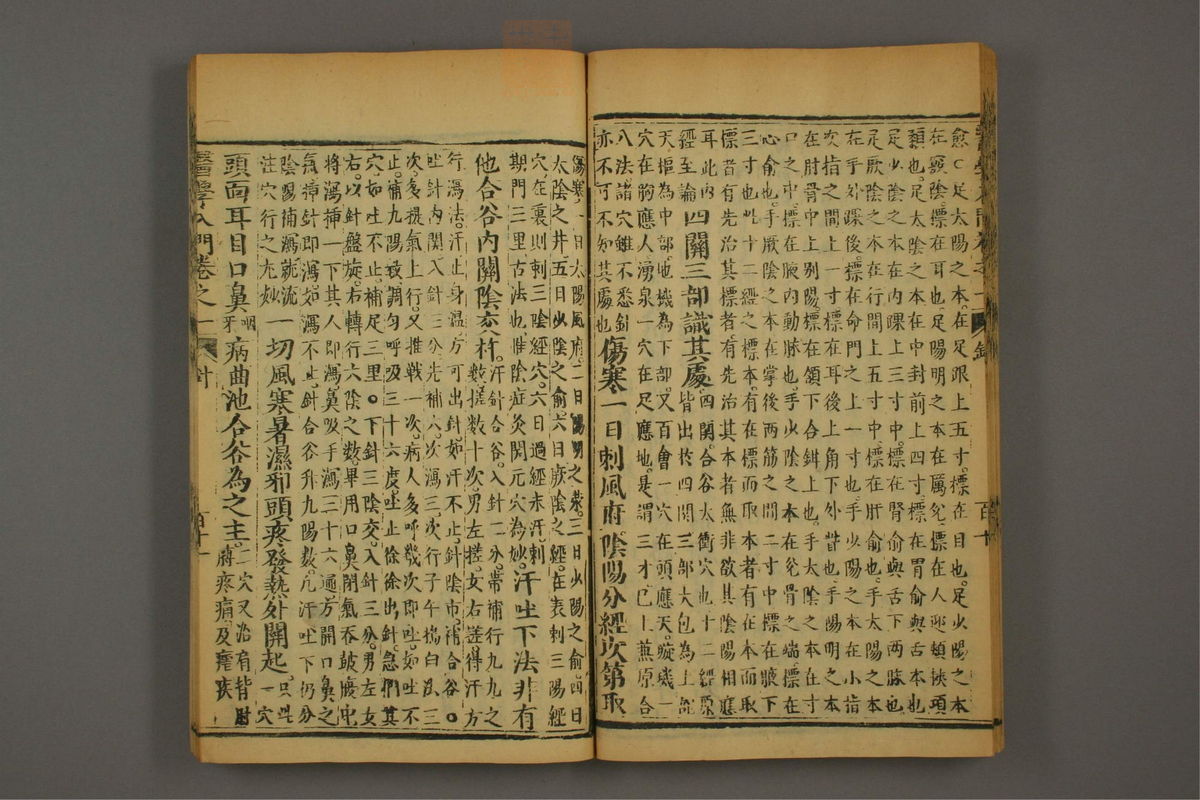 愈〇足太陽之本在足跟上五寸標在目也足少陽之本
在竅陰標在耳也足陽明之本在厲兌標在人迎頰挾項
顙也足太陰之本在中封前上四寸標在胃俞與舌本也
足少陰之本在內踝上三寸中標在腎俞與舌下兩脉也
足厥陰之本在行間上五寸中標在肝俞也手太陽之本
在手外踝後標在命門之上一寸也手少陽之本在小指
次指之間上一寸標在耳後上角下外眥也手陽明之本
在肘骨中上別陽標在頷下合鉗上也手太陰之本在寸
口之中標在腋內動脉也手少陰之本在兌骨之端標在
心俞也手厥陰之本在掌後兩筋之間二寸中標在腋下
三寸也此十二經之標本有在標而取本者有在本而取
標者有先治其標者有先治其本者無非欲其陰陽相應
耳此內
經至論四關三部識其處四關合谷太衝穴也十二經原
皆出於四關三部大包為上部
天樞為中部地機為下部又百會一穴在頭應天璇璣一
穴在胸應人湧泉一穴在足應地是謂三才已上兼原合
八法諸穴雖不悉針
亦不可不知其處也傷寒一日刺風府陰陽分經次第取
傷寒一日太陽風府二日陽明之滎三日少陽之俞四日
太陰之井五日少陰之俞六日厥陰之經在表刺三陽經
穴在裏則刺三陰經穴六日過經未汗刺
期門三里古法也惟陰症灸關元穴為妙汗吐下法非有
他合谷內關陰交杵汗針合谷入針二分帶補行九九之
數搓數十次男左搓女右搓得汗方
行瀉法汗止身溫方可出針如汗不止針陰市補合谷〇
吐針內關入針三分先補六次瀉三次行子午搗臼法三
次多提氣上行又推戰一次病人多呼幾次即吐如吐不
止補九陽數調勻呼吸三十六度吐止徐徐出針急捫其
穴如吐不止補足三里〇下針三陰交入針三分男左女
右以針盤旋右轉行六陰之數畢用口鼻閉氣吞鼓腹中
將瀉插一下其人即瀉鼻吸手瀉三十六遍方開口鼻之
氣插針即瀉如瀉不止針合谷升九陽數凡汗吐下仍分
陰陽補瀉就流
注穴行之尤妙一切風寒暑濕邪頭疼發熱外關起只此
一穴
頭面耳目口鼻咽牙病曲池合谷為之主二穴又治肩背肘
膊疼痛及瘡疾
醫學入門卷之一 針 百十一
百十